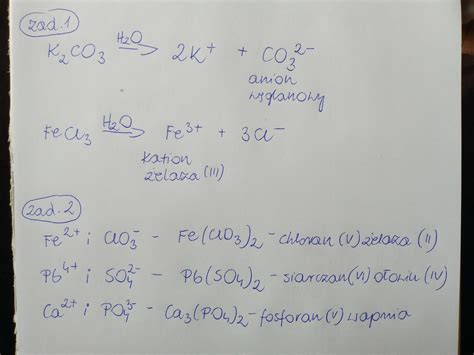 zad. 1
K₂CO₃ →(H₂O) 2K⁺ + CO₃²⁻
anion
węglanowy
FeCl₃ →(H₂O) Fe³⁺ + 3Cl⁻
kation
żelaza (III)
zad. 2
Fe²⁺ i ClO₃⁻ - Fe(ClO₃)₂ - chloran (V) żelaza (II)
Pb⁴⁺ i SO₄²⁻ - Pb(SO₄)₂ - siarczan (VI) ołowiu (IV)
Ca²⁺ i PO₄³⁻ - Ca₃(PO₄)₂ - fosforan (V) wapnia